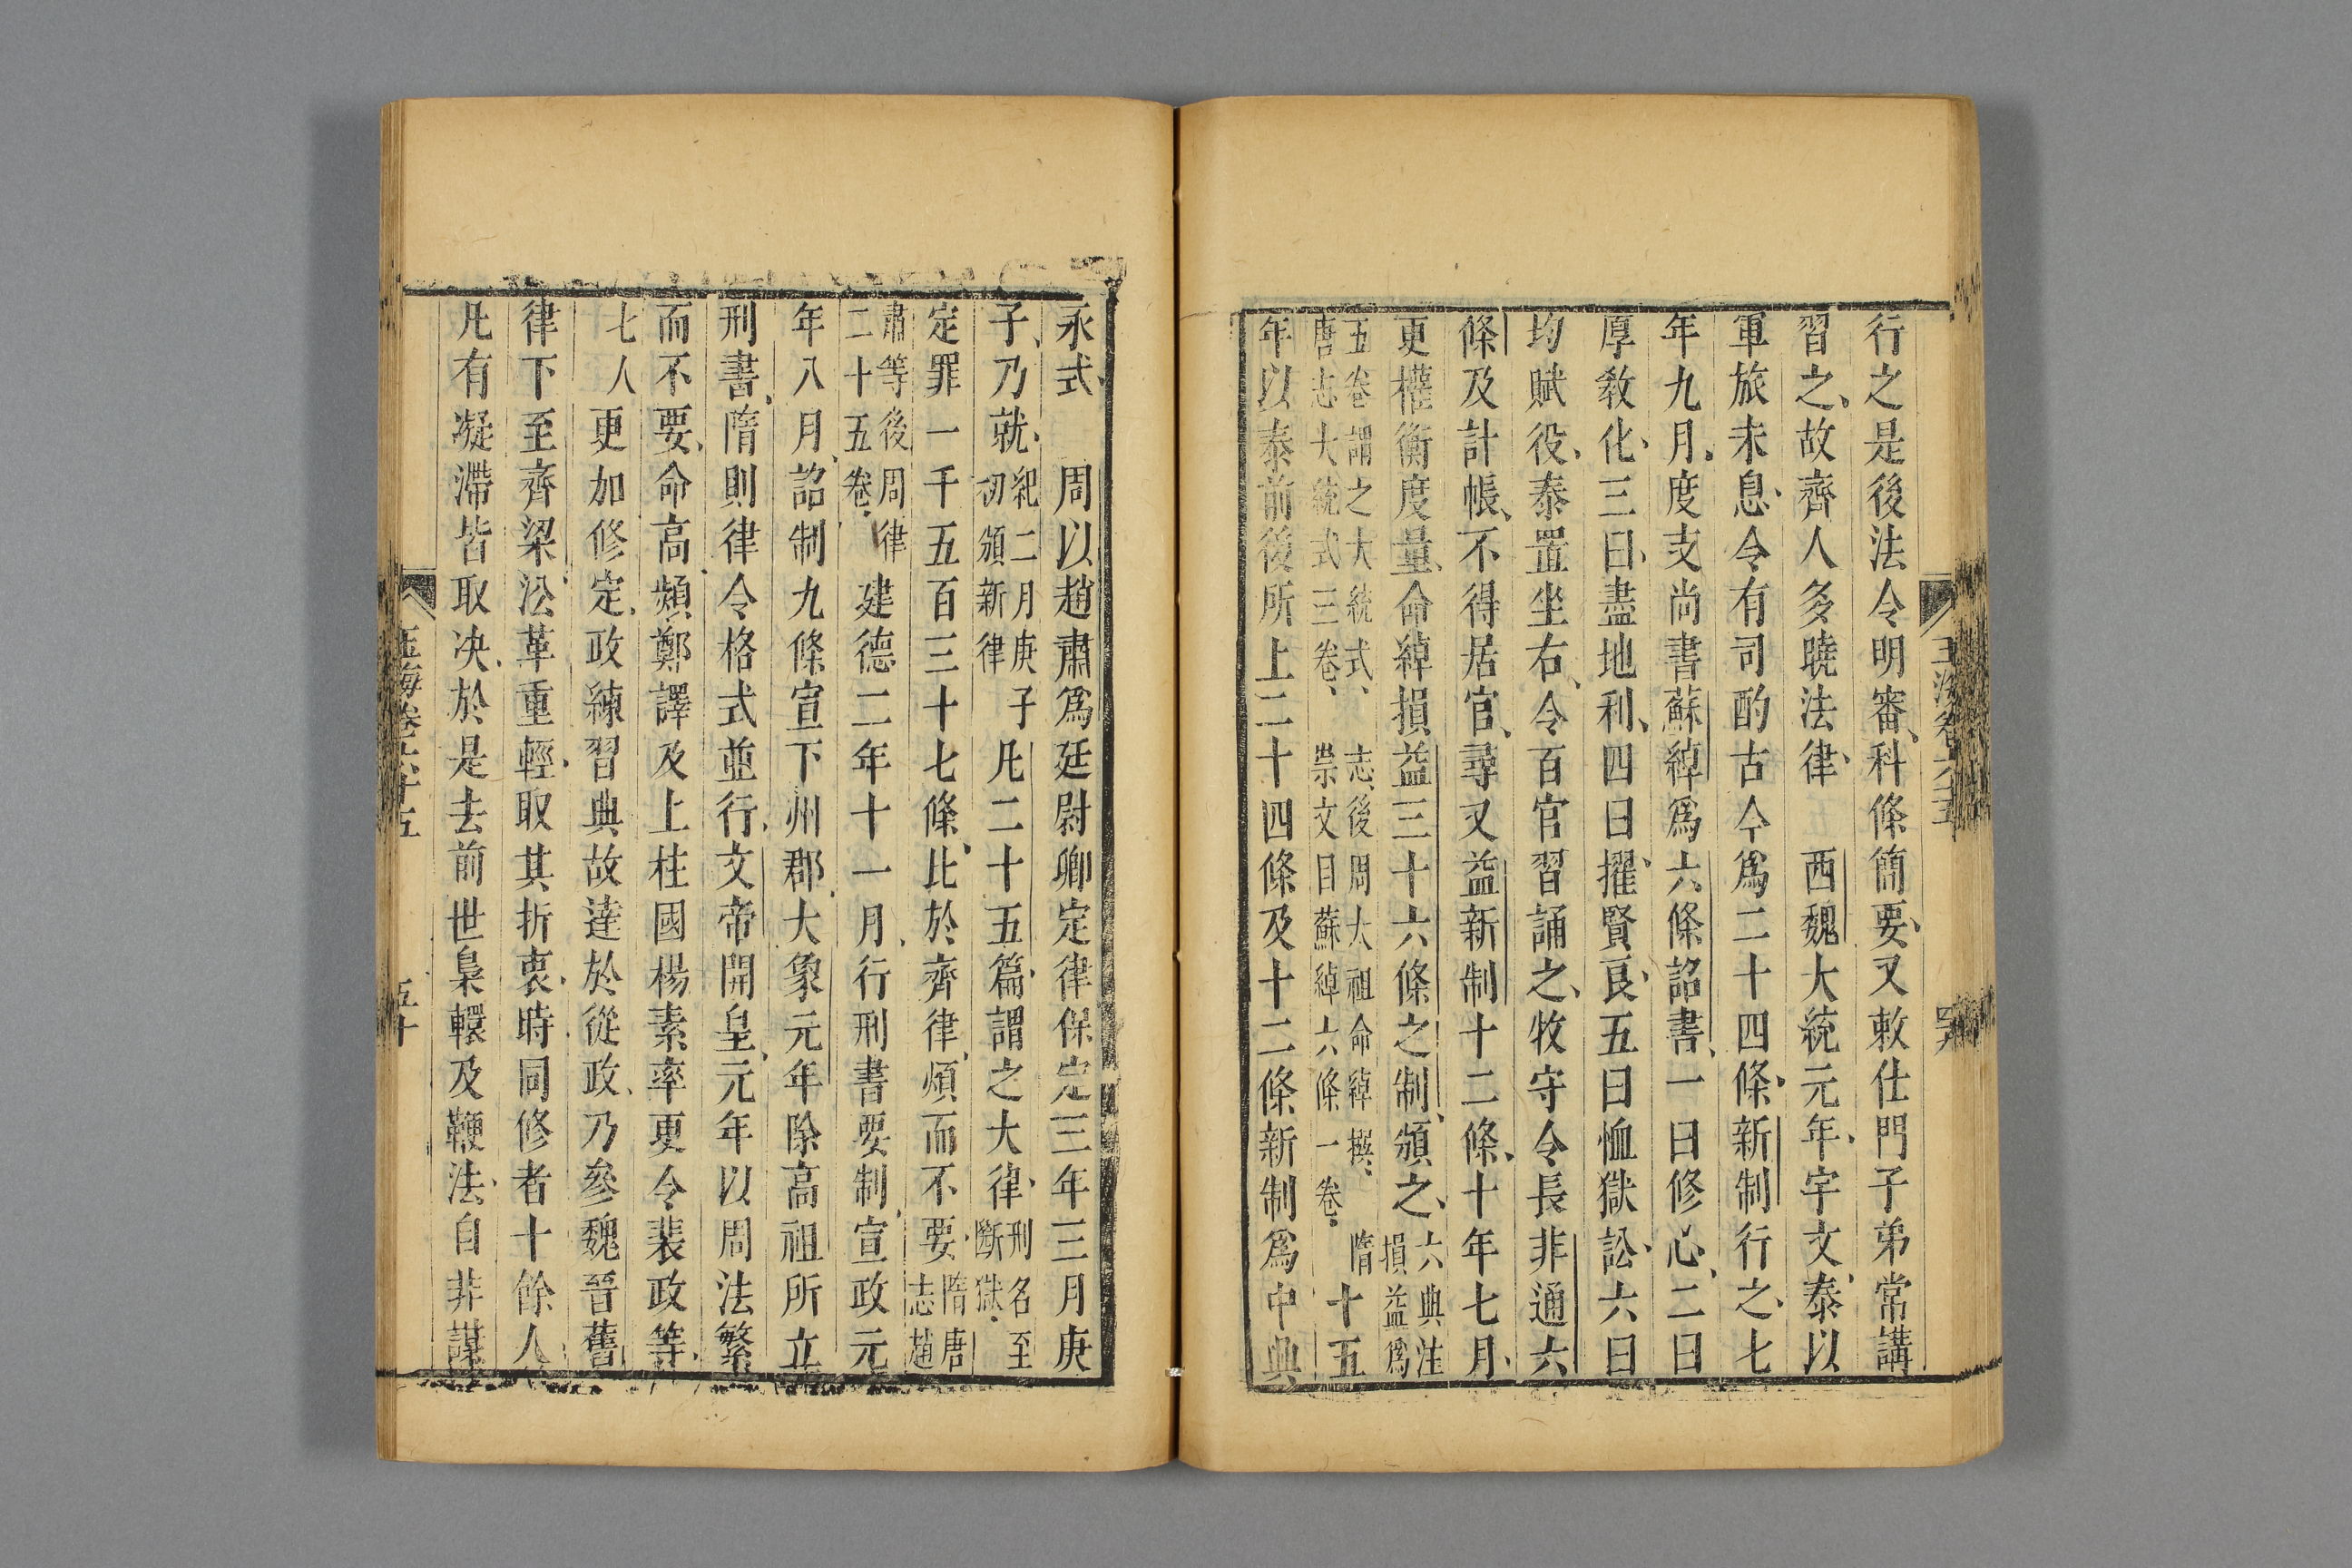 行之是後法令明審科條簡要又敕仕門子弟常講
習之故齊人多曉法律　西魏大統元年宇文泰以
軍旅未息令有司酌古今爲二十四條新制行之七
年九月度支尚書蘇綽爲六條詔書一曰修心二曰
厚敎化三曰盡地利四曰擢賢良五曰恤獄訟六曰
均賦役泰置坐右令百官習誦之牧守令長非通六
條及計帳不得居官尋又益新制十二條十年七月
更權衡度量命綽損益三十六條之制頒之
六典注
損益爲
五卷謂之大統式
隋
唐志大統式三卷
志後周太祖命綽撰
崇文目蘇綽六條一卷
十五
年以泰前後所上二十四條及十二條新制爲中興
永式　周以趙肅爲廷尉卿定律保定三年三月庚
子乃就
紀二月庚子
初頒新律
凡二十五篇謂之大律
刑名至
斷獄
定罪一千五百三十七條比於齊律煩而不要
隋唐
志趙
肅等後周律
二十五卷
建德二年十一月行刑書要制宣政元
年八月詔制九條宣下州郡大象元年除高祖所立
刑書隋則律令格式並行文帝開皇元年以周法繁
而不要命高熲鄭譯及上柱國楊素率更令裴政等
七人
更加修定政練習典故達於從政乃參魏晉舊
律下至齊梁㳂革重輕取其折衷時同修者十餘人
凡有凝滯皆取决於是去前世梟轘及鞭法自非謀
玉海卷六十五
五十